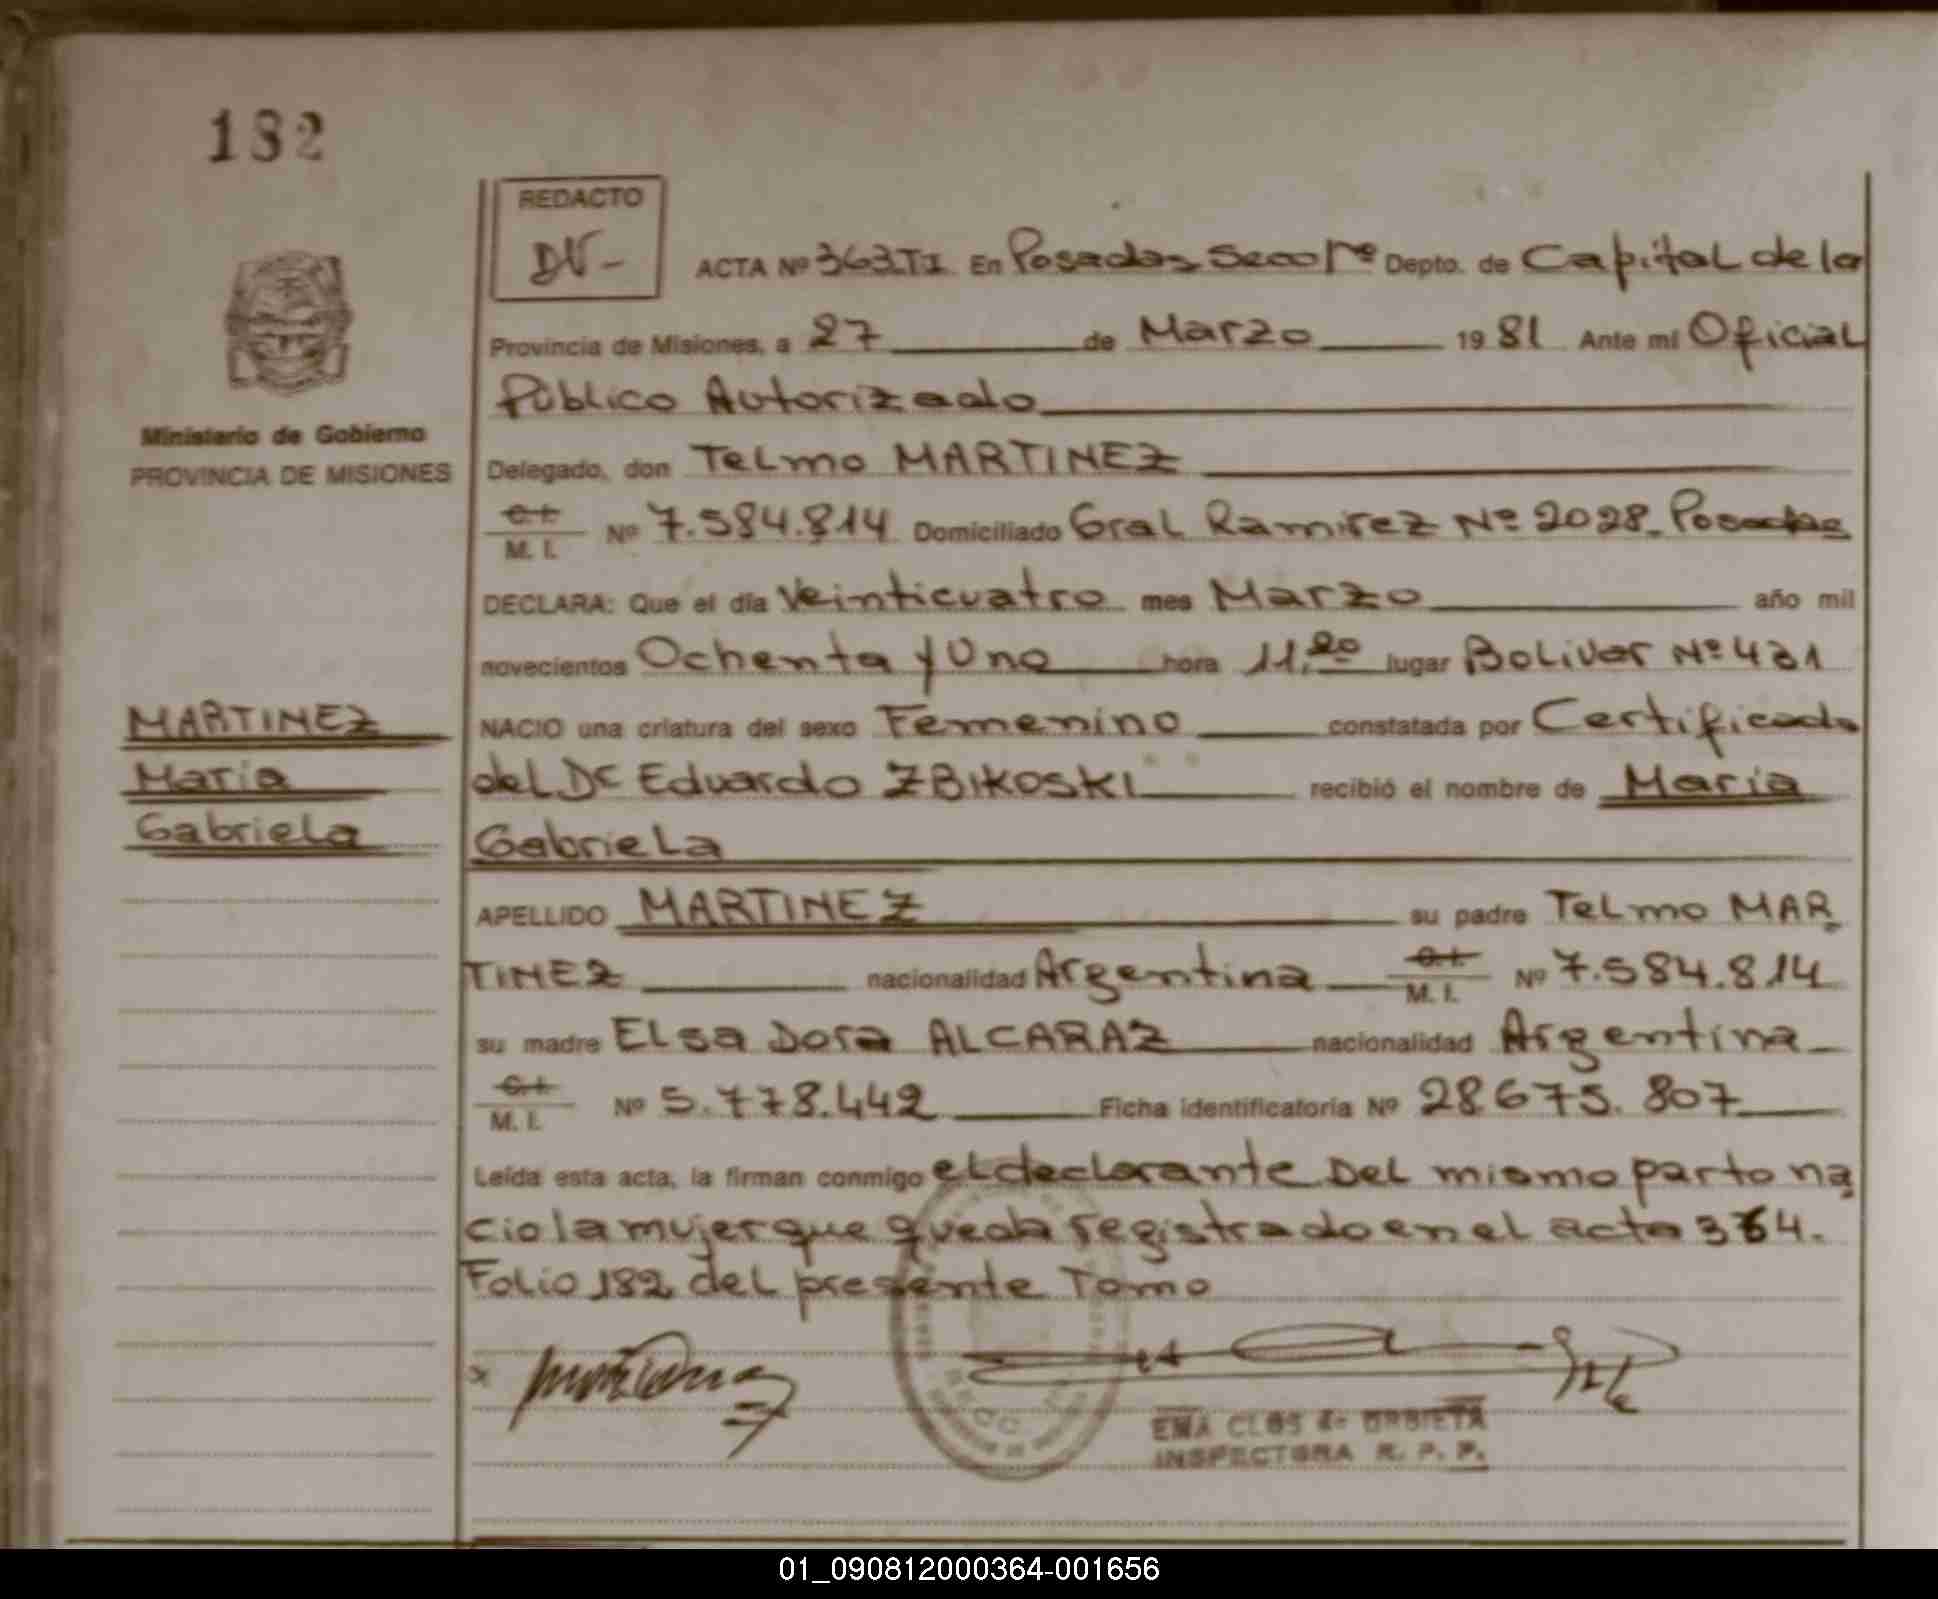 182
REDACTO
DV-
ACTA Nº 363.TI. En Posadas Secc 1ª Depto. de Capital de la
Provincia de Misiones, a 27 de Marzo 1981 Ante mi Oficial
Público Autorizado
Ministerio de Gobierno
PROVINCIA DE MISIONES
Delegado, don Telmo MARTINEZ
C.I.
M. I. Nº 7.584.814 Domiciliado Gral Ramirez Nº 2028. Posadas
DECLARA: Que el día Veinticuatro mes Marzo año mil
novecientos Ochenta y Uno hora 11,20 lugar Bolivar Nº 431
MARTINEZ
Maria
Gabriela
NACIO una criatura del sexo Femenino constatada por Certificado
del Dr Eduardo ZBIKOSKI recibió el nombre de Maria
Gabriela
APELLIDO MARTINEZ su padre Telmo MAR
TINEZ nacionalidad Argentina C.I.
M. I. Nº 7.584.814
su madre Elsa Dora ALCARAZ nacionalidad Argentina
C.I.
M. I. Nº 5.778.442 Ficha identificatoria Nº 28.675.807
Leída esta acta, la firman conmigo el declarante Del mismo parto na
cio la mujer que queda registrado en el acta 364.
Folio 182 del presente Tomo
EMA CLOS de URBIETA
INSPECTORA R. P. P.
01_090812000364-001656